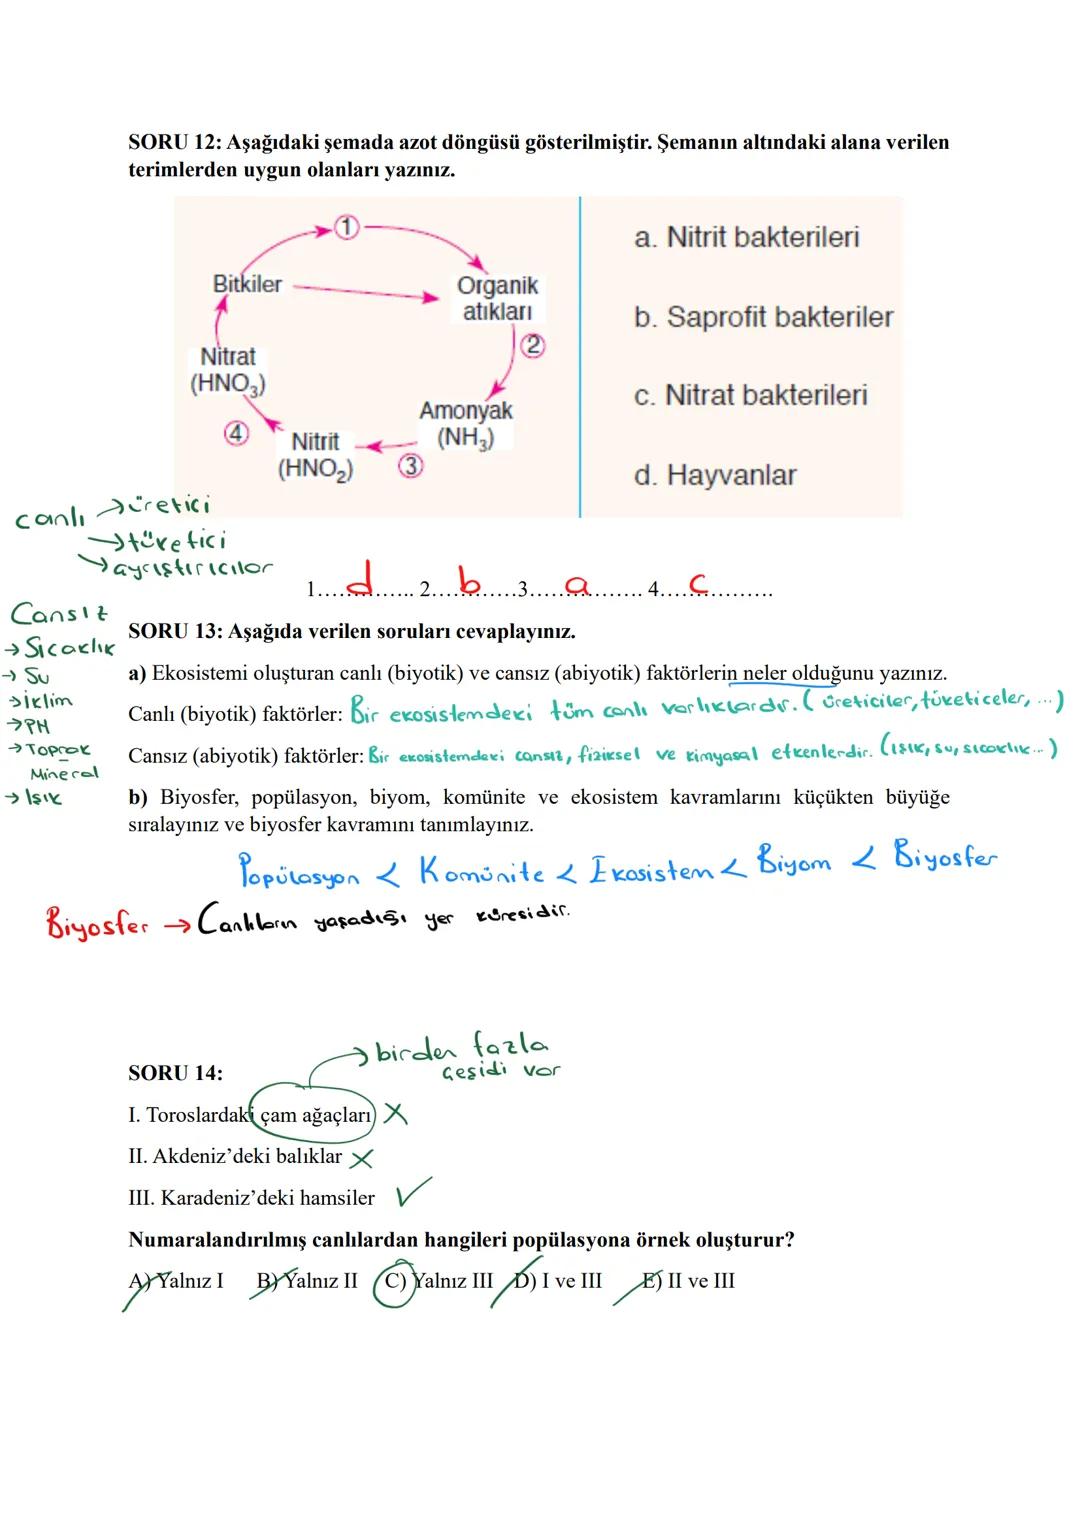 SORU 12: Aşağıdaki şemada azot döngüsü gösterilmiştir. Şemanın altındaki alana verilen
terimlerden uygun olanları yazınız.
1
Bitkiler
Organik
atıkları
2
Nitrat
(HNO3)
Amonyak
(NH3)
4
Nitrit
(HNO2)
3
a. Nitrit bakterileri
b. Saprofit bakteriler
c. Nitrat bakterileri
d. Hayvanlar
canlı → üretici
→ tüketici
→ ayrıştırıcılar
1....d...... 2....b......3......a......... 4.....c...........
Cansız
→ Sıcaklık
→ Su
→ iklim
→ PH
→ Toprak
Mineral
→ Işık
SORU 13: Aşağıda verilen soruları cevaplayınız.
a) Ekosistemi oluşturan canlı (biyotik) ve cansız (abiyotik) faktörlerin neler olduğunu yazınız.
Canlı (biyotik) faktörler: Bir ekosistemdeki tüm canlı varlıklardır. ( üreticiler, tüketiceler, ...)
Cansız (abiyotik) faktörler: Bir ekosistemdeki cansız, fiziksel ve kimyasal etkenlerdir. (ışık, su, sıcaklık...)
b) Biyosfer, popülasyon, biyom, komünite ve ekosistem kavramlarını küçükten büyüğe
sıralayınız ve biyosfer kavramını tanımlayınız.
Popülasyon < Komünite < Ekosistem < Biyom < Biyosfer
Biyosfer → Canlıların yaşadığı yer küresidir.
→ birden fazla
çeşidi var
SORU 14:
I. Toroslardaki çam ağaçları X
II. Akdeniz’deki balıklar X
III. Karadeniz’deki hamsiler ✓
Numaralandırılmış canlılardan hangileri popülasyona örnek oluşturur?
A) Yalnız I B) Yalnız II C) Yalnız III D) I ve III E) II ve III